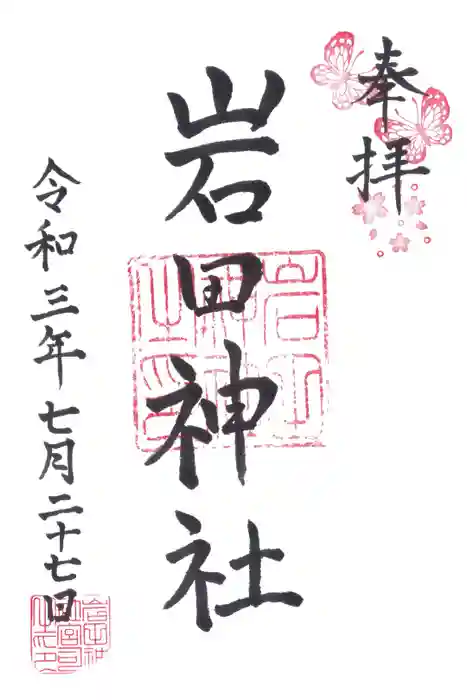 奉拝
岩田神社
令和三年七月二十七日